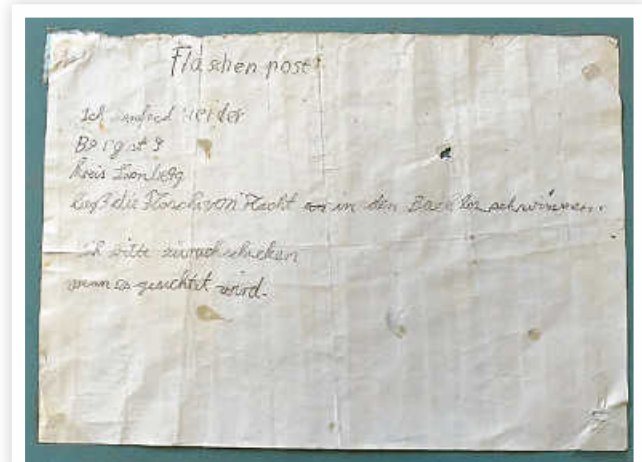 Flaschenpost
Ich
Bergst 9
Kreis Leonberg
die Flasche von Flacht in den Bach los schwimmen.
ich bitte zurück schicken
wenn es gesichtet wird.